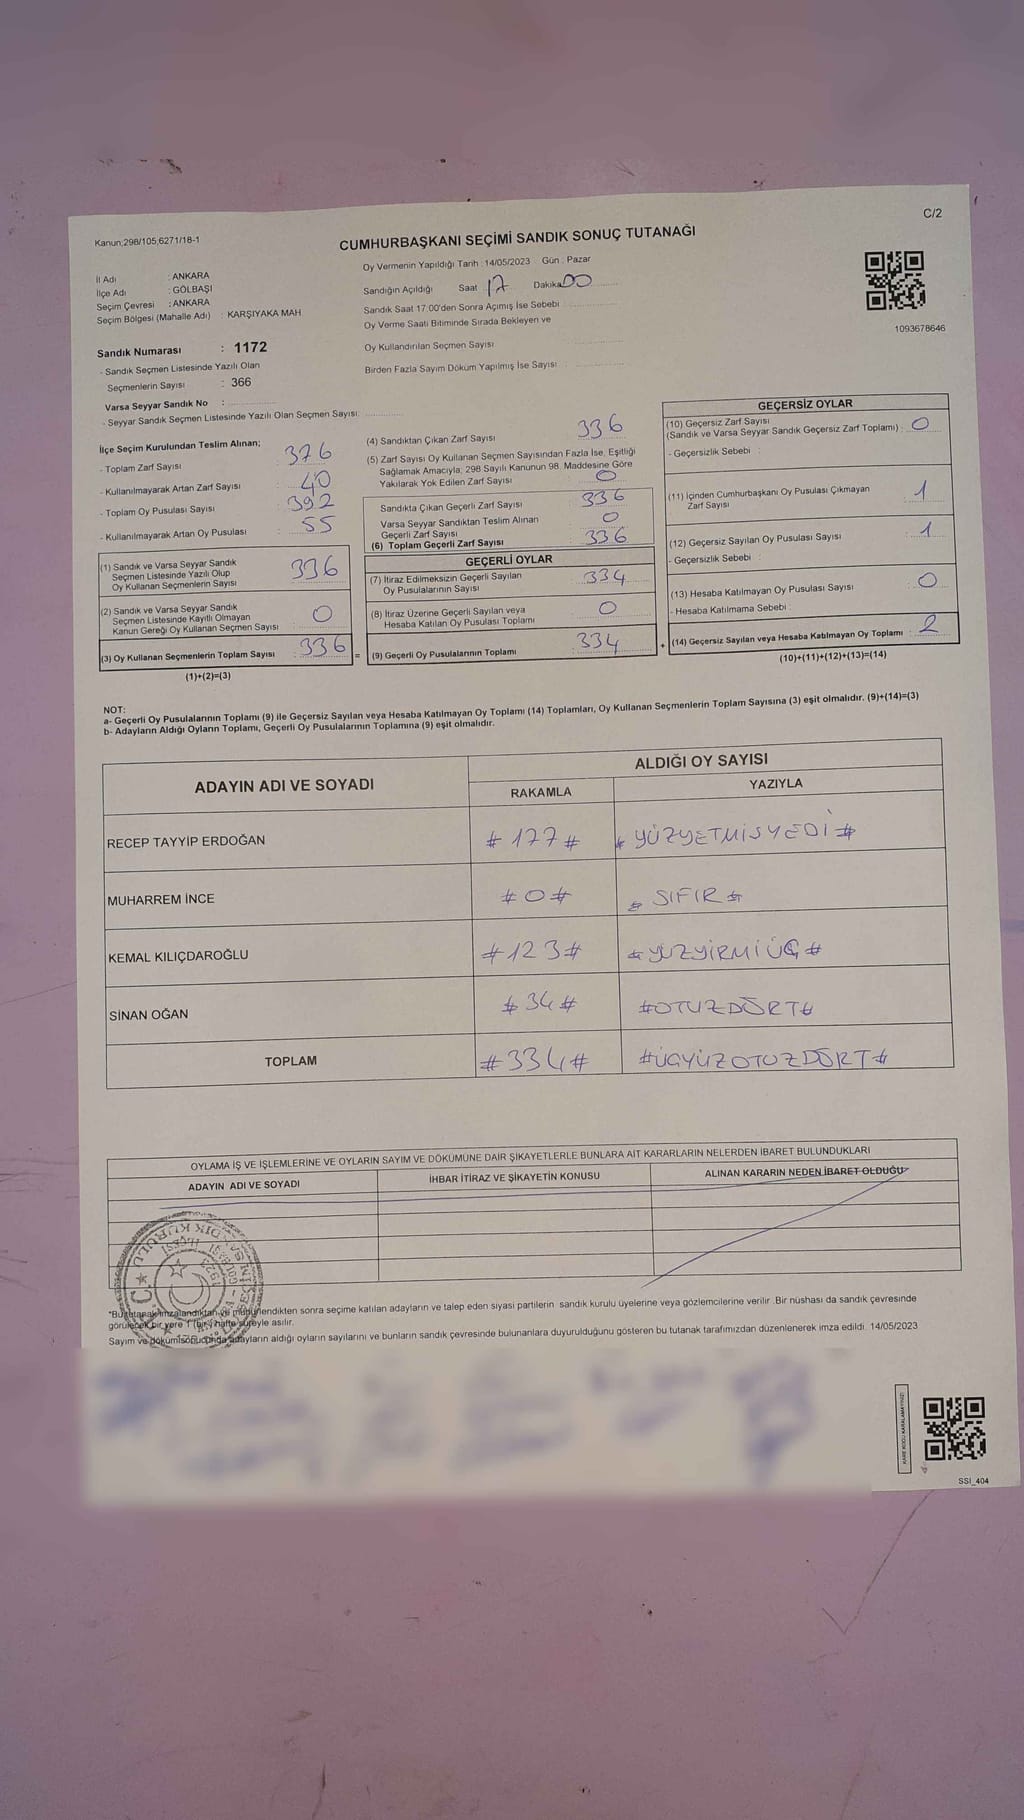 C/2
Kanun;298/105,6271/18-1
CUMHURBAŞKANI SEÇİMİ SANDIK SONUÇ TUTANAĞI
İl Adı : ANKARA
İlçe Adı : GÖLBAŞI
Seçim Çevresi : ANKARA
Seçim Bölgesi (Mahalle Adı) : KARŞIYAKA MAH
Oy Vermenin Yapıldığı Tarih : 14/05/2023 Gün : Pazar
Sandığın Açıldığı Saat 17 Dakika 00
Sandık Saat 17:00'den Sonra Açımış İse Sebebi
Oy Verme Saati Bitiminde Sırada Bekleyen ve
Oy Kullandırılan Seçmen Sayısı
Birden Fazla Sayım Döküm Yapılmış İse Sayısı :
1093678646
Sandık Numarası : 1172
- Sandık Seçmen Listesinde Yazılı Olan
Seçmenlerin Sayısı : 366
Varsa Seyyar Sandık No :
- Seyyar Sandık Seçmen Listesinde Yazılı Olan Seçmen Sayısı:
İlçe Seçim Kurulundan Teslim Alınan;
- Toplam Zarf Sayısı : 376
- Kullanılmayarak Artan Zarf Sayısı : 40
- Toplam Oy Pusulası Sayısı : 392
- Kullanılmayarak Artan Oy Pusulası : 55
(1) Sandık ve Varsa Seyyar Sandık
Seçmen Listesinde Yazılı Olup
Oy Kullanan Seçmenlerin Sayısı : 336
(2) Sandık ve Varsa Seyyar Sandık
Seçmen Listesinde Kayıtlı Olmayan
Kanun Gereği Oy Kullanan Seçmen Sayısı : 0
(3) Oy Kullanan Seçmenlerin Toplam Sayısı : 336 =
(1)+(2)=(3)
(4) Sandıktan Çıkan Zarf Sayısı : 336
(5) Zarf Sayısı Oy Kullanan Seçmen Sayısından Fazla İse, Eşitliği
Sağlamak Amacıyla; 298 Sayılı Kanunun 98. Maddesine Göre
Yakılarak Yok Edilen Zarf Sayısı : 0
Sandıkta Çıkan Geçerli Zarf Sayısı : 336
Varsa Seyyar Sandıktan Teslim Alınan
Geçerli Zarf Sayısı : 0
(6) Toplam Geçerli Zarf Sayısı : 336
GEÇERLİ OYLAR
(7) İtiraz Edilmeksizin Geçerli Sayılan
Oy Pusulalarının Sayısı : 334
(8) İtiraz Üzerine Geçerli Sayılan veya
Hesaba Katılan Oy Pusulası Toplamı : 0
(9) Geçerli Oy Pusulalarının Toplamı : 334 +
GEÇERSİZ OYLAR
(10) Geçersiz Zarf Sayısı
(Sandık ve Varsa Seyyar Sandık Geçersiz Zarf Toplamı) : 0
- Geçersizlik Sebebi :
(11) İçinden Cumhurbaşkanı Oy Pusulası Çıkmayan
Zarf Sayısı : 1
(12) Geçersiz Sayılan Oy Pusulası Sayısı : 1
- Geçersizlik Sebebi :
(13) Hesaba Katılmayan Oy Pusulası Sayısı : 0
- Hesaba Katılmama Sebebi :
(14) Geçersiz Sayılan veya Hesaba Katılmayan Oy Toplamı : 2
(10)+(11)+(12)+(13)=(14)
NOT:
a- Geçerli Oy Pusulalarının Toplamı (9) ile Geçersiz Sayılan veya Hesaba Katılmayan Oy Toplamı (14) Toplamları, Oy Kullanan Seçmenlerin Toplam Sayısına (3) eşit olmalıdır. (9)+(14)=(3)
b- Adayların Aldığı Oyların Toplamı, Geçerli Oy Pusulalarının Toplamına (9) eşit olmalıdır.
ADAYIN ADI VE SOYADI
ALDIĞI OY SAYISI
RAKAMLA YAZIYLA
RECEP TAYYİP ERDOĞAN #177# #YÜZYETMİSYEDİ#
MUHARREM İNCE #0# #SIFIR#
KEMAL KILIÇDAROĞLU #123# #YÜZYİRMİÜÇ#
SİNAN OĞAN #34# #OTUZDÖRT#
TOPLAM #334# #ÜÇYÜZOTUZDÖRT#
OYLAMA İŞ VE İŞLEMLERİNE VE OYLARIN SAYIM VE DÖKÜMÜNE DAİR ŞİKAYETLERLE BUNLARA AİT KARARLARIN NELERDEN İBARET BULUNDUKLARI
ADAYIN ADI VE SOYADI İHBAR İTİRAZ VE ŞİKAYETİN KONUSU ALINAN KARARIN NEDEN İBARET OLDUĞU
*Bu tutanak imzalandıktan ve mühürlendikten sonra seçime katılan adayların ve talep eden siyasi partilerin sandık kurulu üyelerine veya gözlemcilerine verilir. Bir nüshası da sandık çevresinde
görülecek bir yere 1 (bir) hafta süreyle asılır.
Sayım ve dökümü sonucunda adayların aldığı oyların sayılarını ve bunların sandık çevresinde bulunanlara duyurulduğunu gösteren bu tutanak tarafımızdan düzenlenerek imza edildi. 14/05/2023
KARE KODU KARALAMAYINIZ!
SSI_404